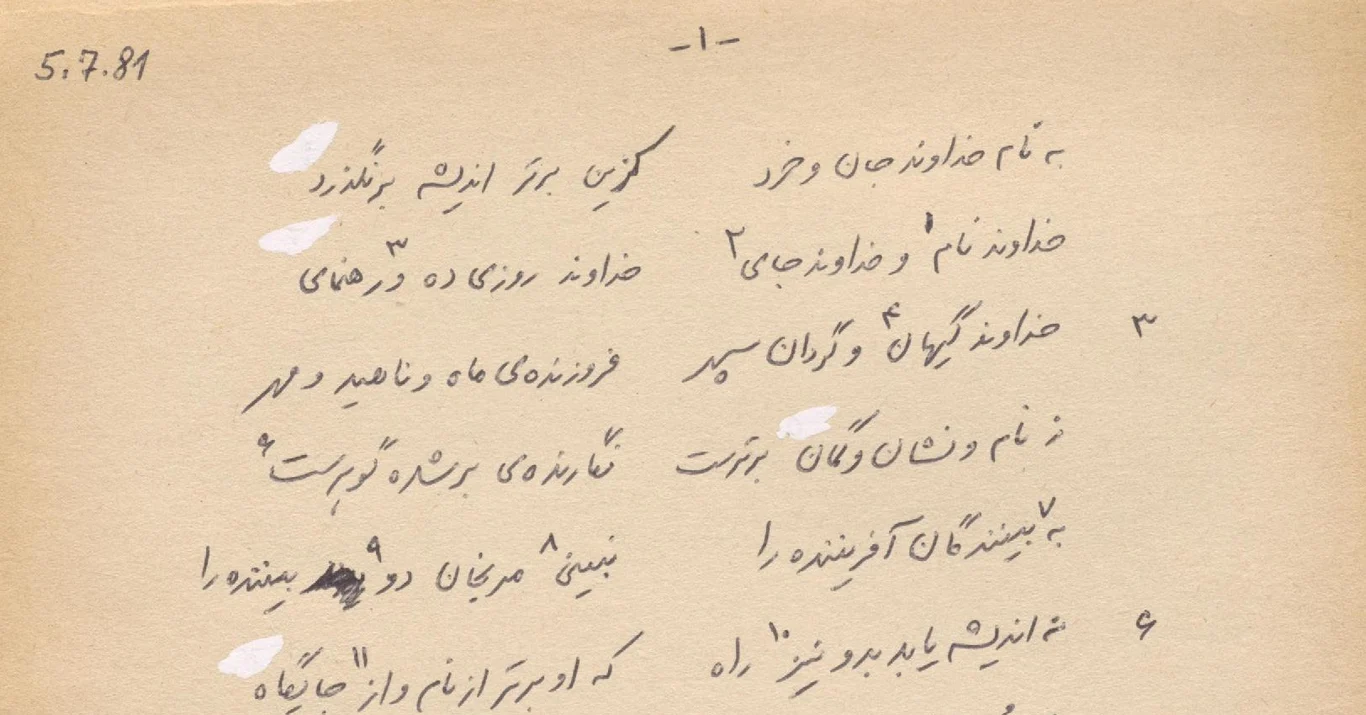 5.7.81
-۱-
به نام خداوند جان و خرد کزین برتر اندیشه برنگذرد
خداوند نام۱ و خداوند جای۲ خداوند روزی ده و۳ رهنمای
۳ خداوند گیهان۴ و گردان سپهر فروزنده‌ی ماه و ناهید و مهر
ز نام و نشان و گمان برترست نگارنده‌ی برشده گوهرست۶
به۷ بینندگان آفریننده را نبینی۸ مرنجان دو۹ بیننده را
۶ نه اندیشه یابد بدو نیز۱۰ راه که او برتر از نام و از۱۱ جایگاه